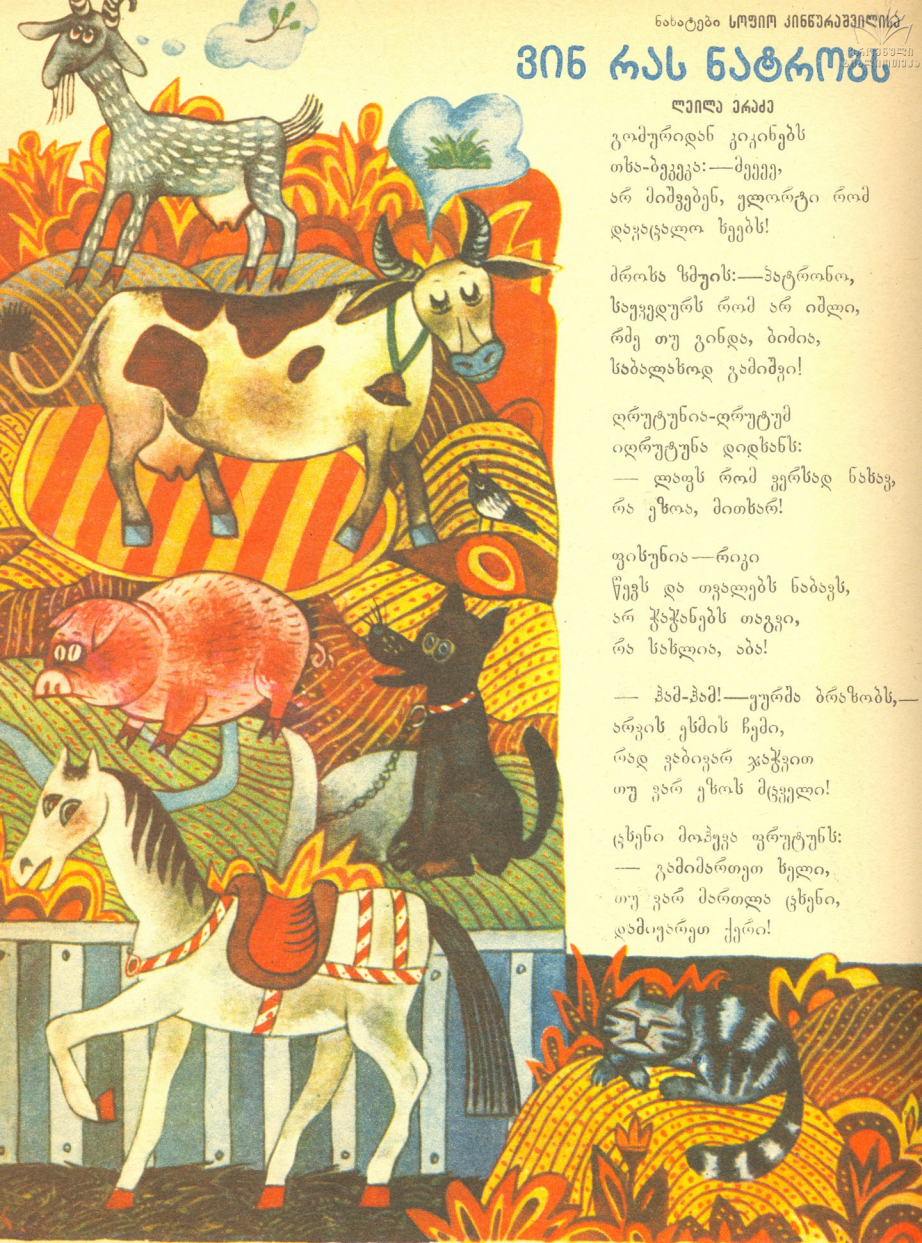 ნახატები სოფიო კინწურაშვილისა
ეროვნული
ბიბლიოთეკა
ვინ რას ნატრობს
ლეილა ერაძე
გომურიდან კიკინებს
თხა-ბეკეკა:—მეეეე,
არ მიშვებენ, ელორტი რომ
დავაცალო ხეებს!
ძროხა ზმუის:—პატრონო,
საყვედურს რომ არ იშლი,
რძე თუ გინდა, ბიძია,
საბალახოდ გამიშვი!
ღრუტუნია-ღრუტუმ
იღრუტუნა დიდხანს:
— ლაფს რომ ვერსად ნახავ,
რა ეზოა, მითხარ!
ფისუნია—რიკი
წევს და თვალებს ნაბავს,
არ ჭაჭანებს თაგვი,
რა სახლია, აბა!
— ჰამ-ჰამ!—ყურშა ბრაზობს,—
არვის ესმის ჩემი,
რად ვაბივარ ჯაჭვით
თუ ვარ ეზოს მცველი!
ცხენი მოჰყვა ფრუტუნს:
— გამიმართეთ ხელი,
თუ ვარ მართლა ცხენი,
დამიყარეთ ქერი!